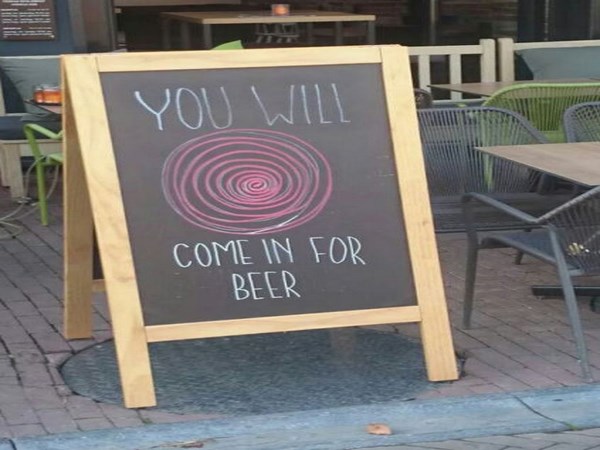 YOU WILL
COME IN FOR
BEER